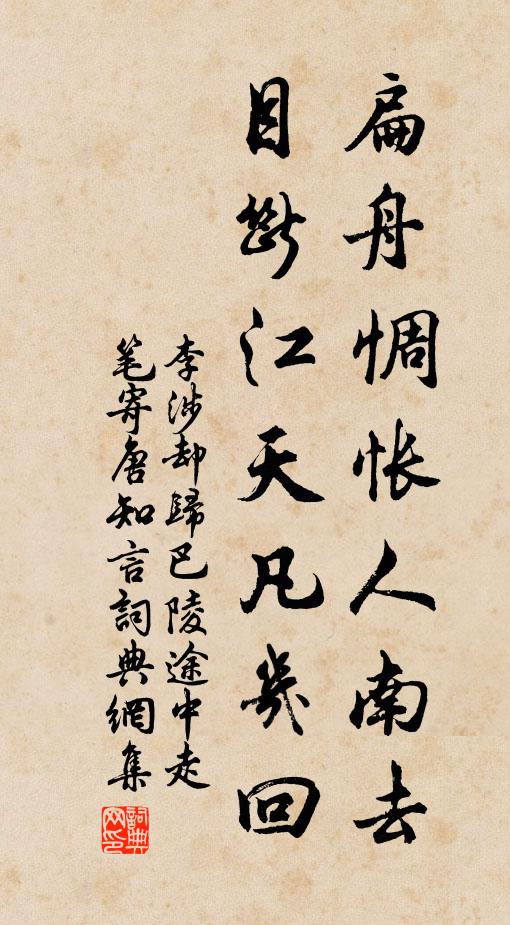 扁舟惆悵人南去
目斷江天凡幾回
李涉却歸巴陵途中走
笔寄唐知言詞典網集
詞典
网印